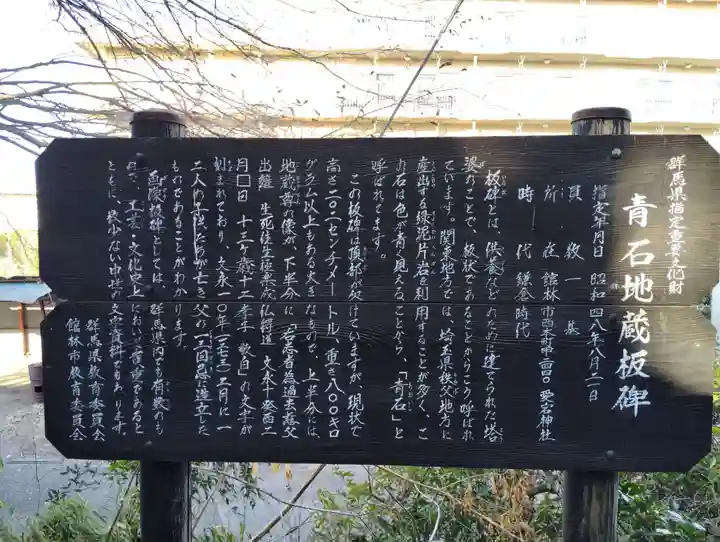 群馬県指定重要文化財
青石地蔵板碑
指定年月日 昭和四八年八月二一日
員数 一基
所在 館林市西本町 愛宕神社
時代 鎌倉時代
板碑とは、供養などのために建てられた塔
婆のことで、板状であることからこう呼ばれ
ています。関東地方では、埼玉県秩父地方に
産出する緑泥片岩を利用することが多く、こ
の石は色が青く見えることから、「青石」と
呼ばれてます。
この板碑は頂部が欠けていますが、現状で
高さ二〇二センチメートル、重さ八〇〇キロ
グラム以上もある大きなもので、上半分には、
地蔵尊の像が、下半分に「右志者為過去慈父
出離 生死往生極楽成仏得道 文永十癸酉二
月□日 十三年 敬白」の文字が
刻まれており、文永一〇年(一二七三)二月に
二人の 亡き父の 忌に造立した
ものであることがわかります。
画像板碑としては、群馬県内でも有数のも
で、工芸・文化史上において貴重であると
ともに、数少ない中世の文字資料でもあります。
群馬県教育委員会
館林市教育委員会